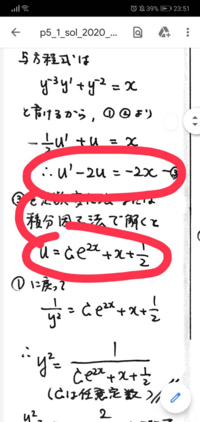 23:51
39%
p5_1_sol_2020_...
与方程式は
y⁻³y' + y⁻² = x
と書けるから、①②より
-½u' + u = x
∴ u' - 2u = -2x —③
積分因子法で解くと
u = Ce²ˣ + x + ½
①に戻って
1/y² = Ce²ˣ + x + ½
∴ y² = 1/(Ce²ˣ + x + ½)
(Cは任意定数)//
2